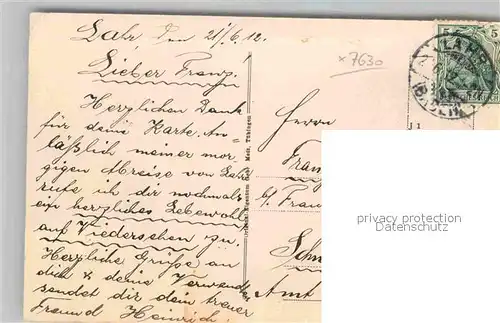 Lahr, den 21/6.12.
Lieber Franz.
Herzlichen Dank
für deine Karte. An-
läßlich meiner mor-
gigen Abreise von Lahr
rufe ich dir nochmals
ein herzliches Lebewohl
auf Wiedersehen zu.
Herzliche Grüße an
dich & deine Verwandten
sendet dir dein treuer
Freund Heinrich.
×7630
5 5
LAHR
(BADEN)
Herrn
Fran
b/ Fran
Schw
Amt
privacy protection
Datenschutz